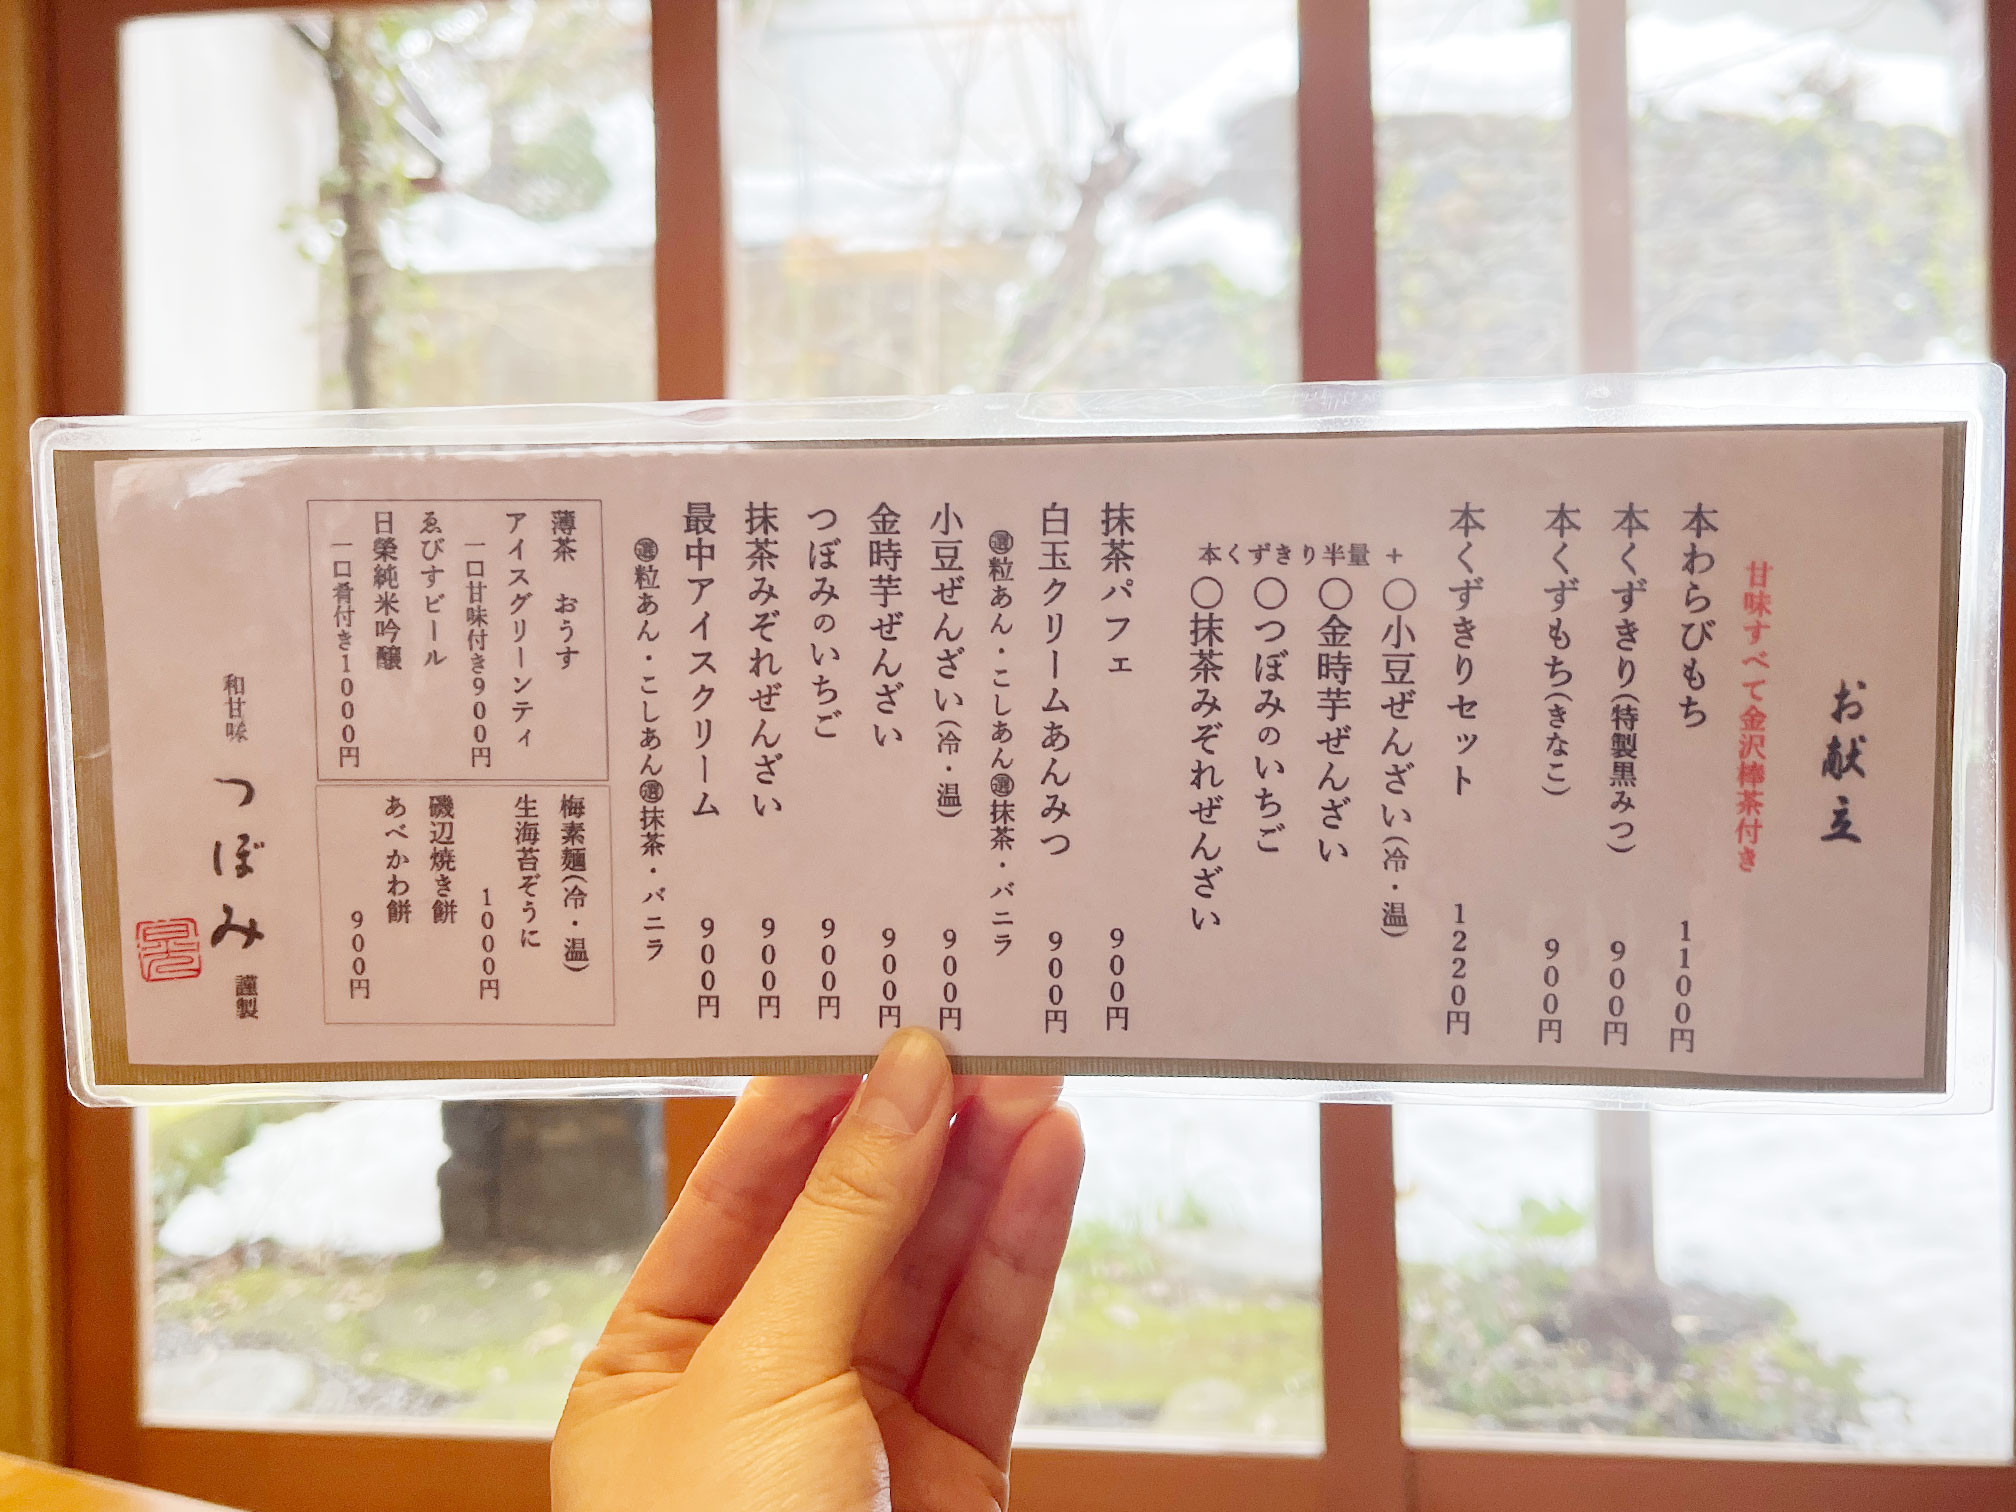 お献立
甘味すべて金沢棒茶付き
本わらびもち 1100円
本くずきり(特製黒みつ) 900円
本くずもち(きなこ) 900円
本くずきりセット 1220円
本くずきり半量 +
○小豆ぜんざい(冷・温)
○金時芋ぜんざい
○つぼみのいちご
○抹茶みぞれぜんざい
抹茶パフェ 900円
白玉クリームあんみつ 900円
㊟粒あん・こしあん㊟抹茶・バニラ
小豆ぜんざい(冷・温) 900円
金時芋ぜんざい 900円
つぼみのいちご 900円
抹茶みぞれぜんざい 900円
最中アイスクリーム 900円
選粒あん・こしあん選抹茶・バニラ
薄茶 おうす
アイスグリーンティ
一口甘味付き900円
ゑびすビール
日榮純米吟醸
一口肴付き1000円
梅素麺(冷・温)
生海苔ぞうに
1000円
磯辺焼き餅
あべかわ餅
900円
和甘味 つぼみ 謹製